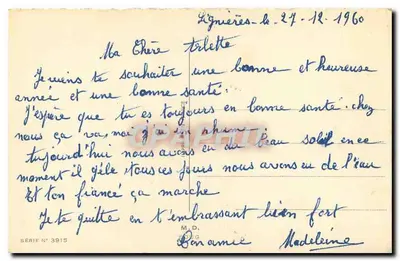 Lignières-le 27-12-1960
Ma Chère Arlette
Je viens te souhaiter une bonne et heureuse
année et une bonne santé.
J'espère que tu es toujours en bonne santé. chez
nous ça va, moi j'ai un rhume
aujourd'hui nous avons eu du beau soleil en ce
moment il gèle tous ces jours nous avons eu de l'eau
Et ton fiancé ça marche
Je te quitte en t'embrassant bien fort
M. D.
Ton amie Madeleine
SERIE N° 3915